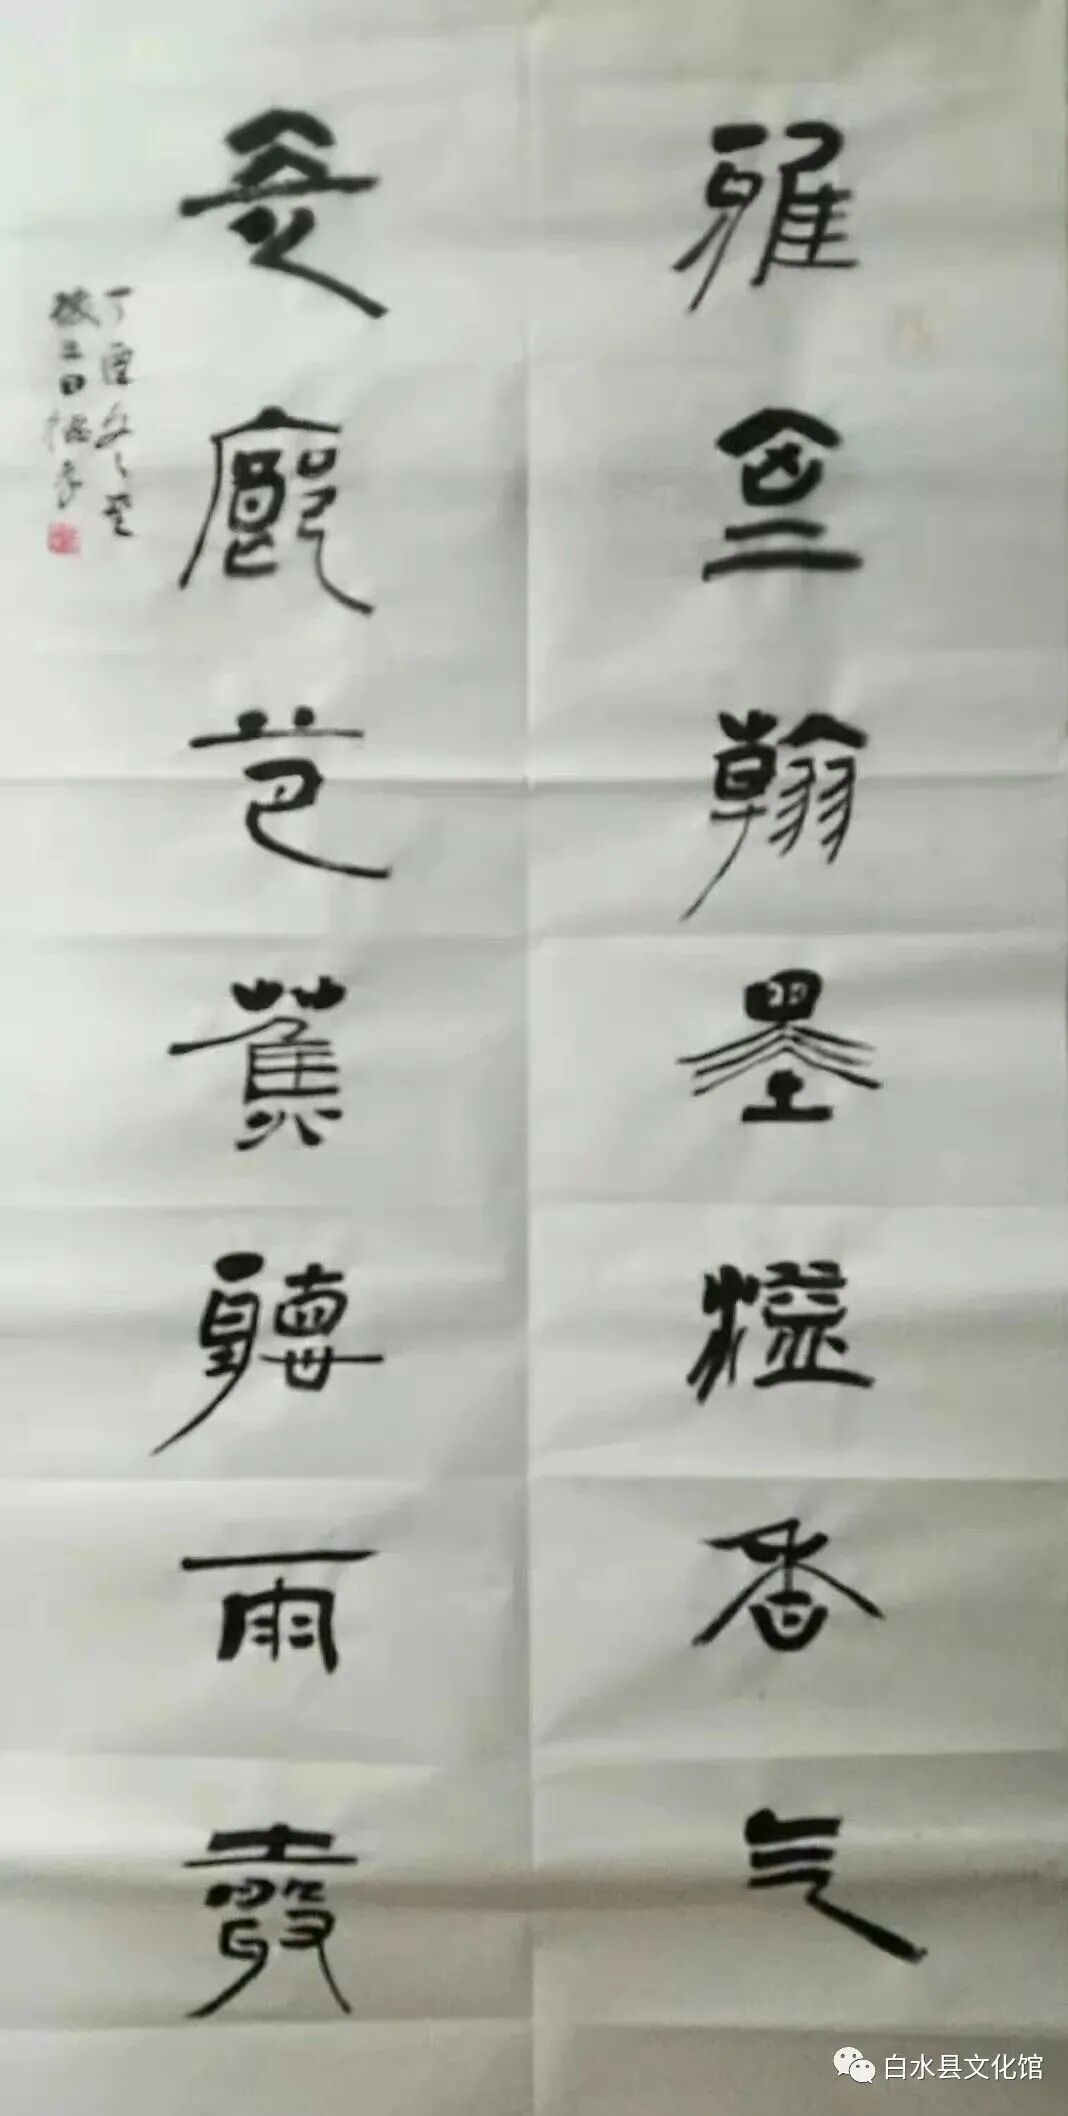 雅室翰墨溢香气
廊芭蕉聽雨聲
丁酉冬
三日
白水县文化馆